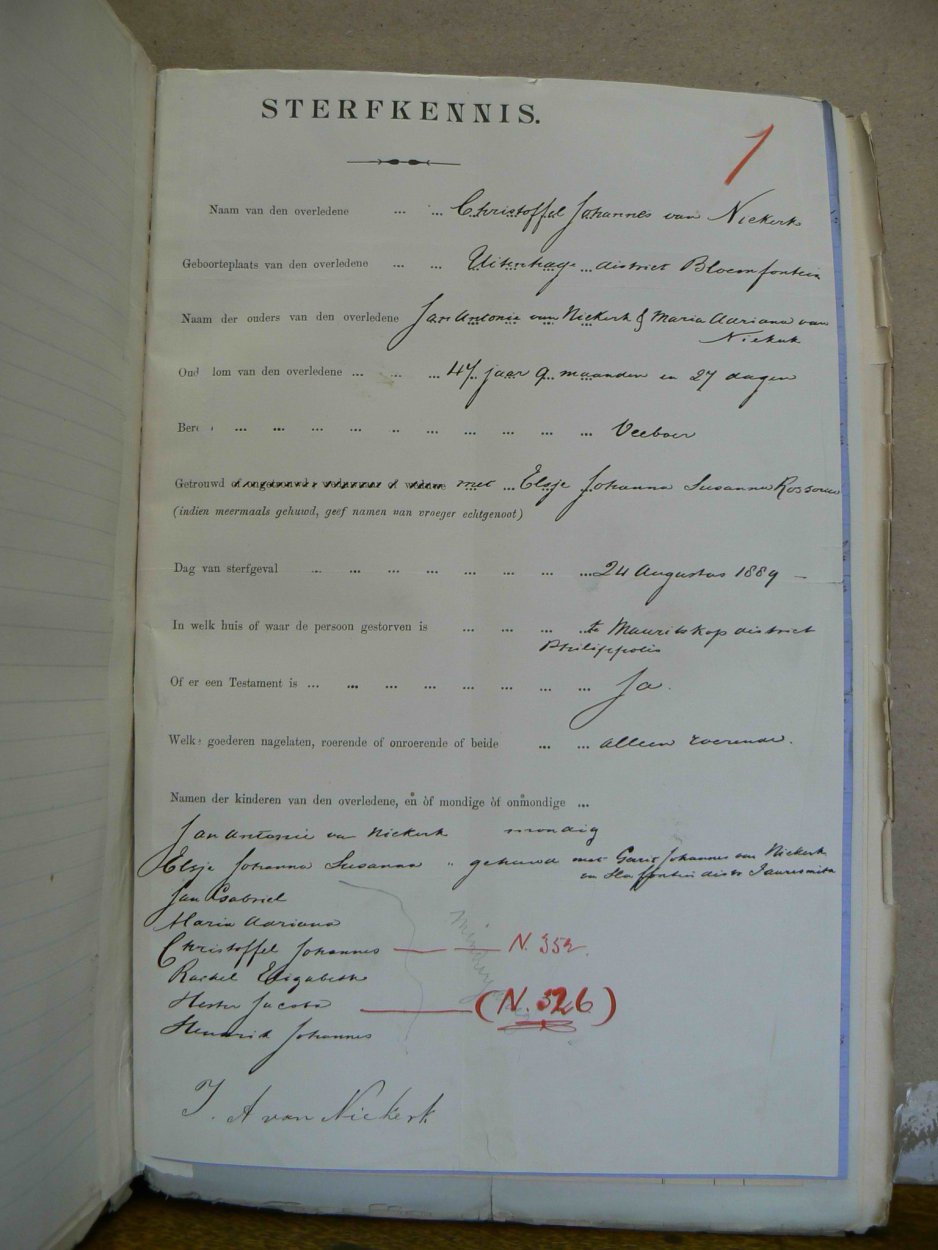 STERFKENNIS.
1
Naam van den overledene ... ... Christoffel Johannes van Niekerk
Geboorteplaats van den overledene ... ... Uitenhage district Bloemfontein
Naam der ouders van den overledene Jan Antonie van Niekerk & Maria Adriana van
Niekerk
Oud lom van den overledene ... ... ... 47 jaar 9 maanden en 27 dagen
Bere ... ... ... ... ... ... ... ... ... ... Veeboer
Getrouwd of ongetrouwd, weduwnaar of weduwe met Elsje Johanna Susanna Rossouw
(indien meermaals gehuwd, geef namen van vroeger echtgenoot)
Dag van sterfgeval ... ... ... ... ... ... ... ... 24 Augustus 1889 —
In welk huis of waar de persoon gestorven is ... ... ... ... te Mauritskop district
Philippolis
Of er een Testament is ... ... ... ... ... ... ... ... Ja.
Welke goederen nagelaten, roerende of onroerende of beide ... ... alleen roerende.
Namen der kinderen van den overledene, en òf mondige òf onmondige ...
Jan Antonie van Niekerk mondig
Elsje Johanna Susanna " gehuwd met Johannes van Niekerk
van distr Fauresmith
Jan Gabriel
Maria Adriana
Christoffel Johannes — — N. 352.
Rachel Elizabeth
Hester Jacoba — (N. 326)
Hendrik Johannes
J. A van Niekerk